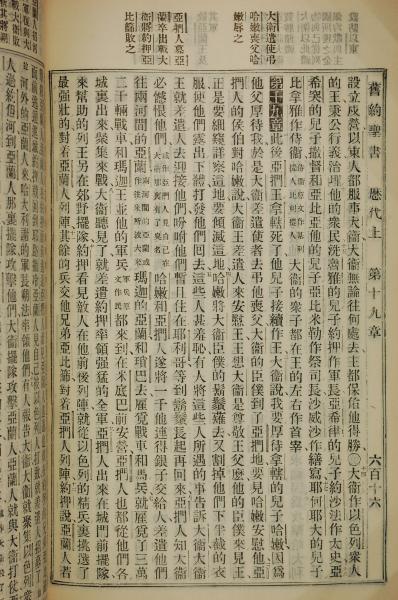 舊約聖書 歷代上 第十九章 六百十六
設立戍營以東人都服事大衞大衞無論往何處去主都保佑他得勝○大衞作以色列衆人
的王秉公行義治理他的衆民洗魯雅的兒子約押作軍長亞希律的兒子約沙法作太史亞
希突的兒子撒督和亞比亞他的兒子亞比米勒作祭司長沙威沙作繕寫耶何耶大的兒子
比拿雅作侍衞大衞的衆子都在王的左右作首宰
第十九章此後亞捫王拿轄死了他兒子接續作王大衞說我要厚待拿轄的兒子哈嫩因爲
他父厚待我於是大衞差遣使者去弔他喪父大衞的臣僕到了亞捫地要見哈嫩安慰他亞
捫人的侯伯對哈嫩說大衞差人來安慰王王想大衞是尊敬王父麽他的臣僕來見王
正是要細窺詳察這地要傾滅這地哈嫩將大衞臣僕的鬍鬚薙去又割掉他們下半截的衣
服使他們露出下體打發他們回去這些人甚羞恥有人將這些人所遇的事告訴大衞大衞
王就差遣人去迎接他們吩咐他們暫且住在耶利哥等到鬍鬚長起再回來亞捫人知大衞
必憾恨他們哈嫩和亞捫人遂將一千他連得銀子交給人差遣他們
往兩河間的亞蘭瑪迦的亞蘭和瑣巴去雇覓戰車和馬兵就雇覓了三萬
二千輛戰車和瑪迦王並他的軍兵都來到在米底巴前安營亞捫人也都從他們各
城裏出來聚集來戰大衞聽見了就差遣約押率領强猛的全軍亞捫人出來在城門前擺隊
來幫助的列王另在郊野擺隊約押看見敵人在他前後列陣就從以色列的精兵裏挑選了
最强壯的對着亞蘭人列陣其餘的兵交他兄弟亞比篩對着亞捫人列陣約押說亞蘭人若
大衞遣使弔
哈嫩喪父哈
嫩辱之
亞捫人募亞
蘭卒出戰大
衞將約押亞
比篩敗之